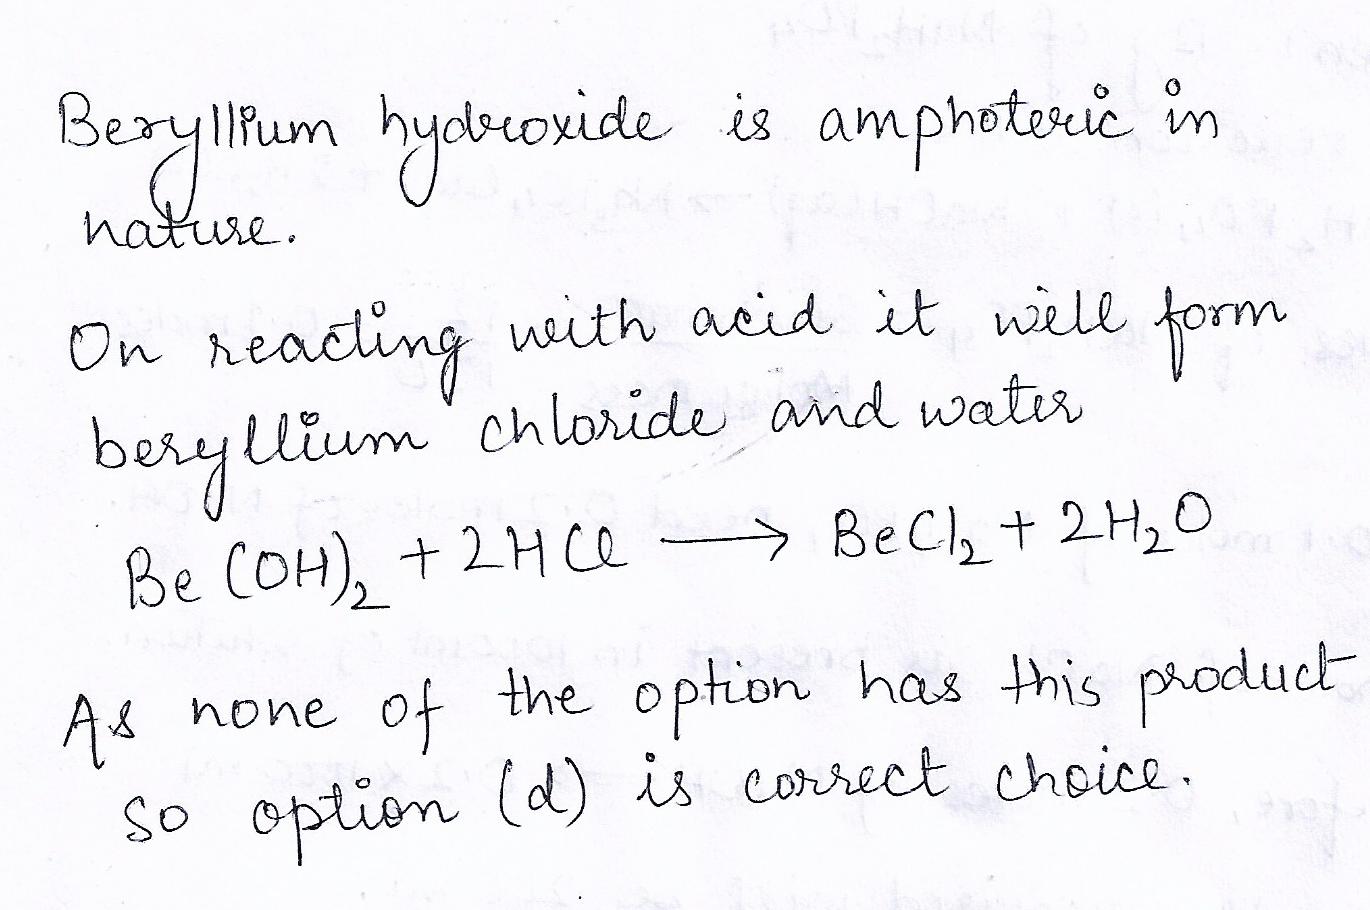 Beryllium hydroxide is amphoteric in
nature.
On reacting with acid it will form
beryllium chloride and water
Be(OH)₂ + 2HCl ⟶ BeCl₂ + 2H₂O
As none of the option has this product
so option (d) is correct choice.